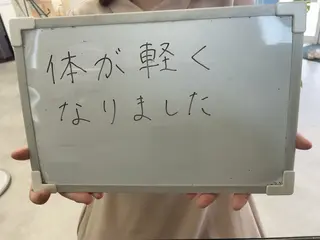 体が軽く
なりました